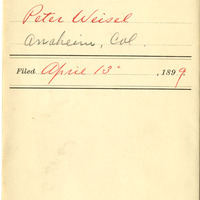 Peter Weisel
Anaheim, Cal.
Filed April 13" , 1899.